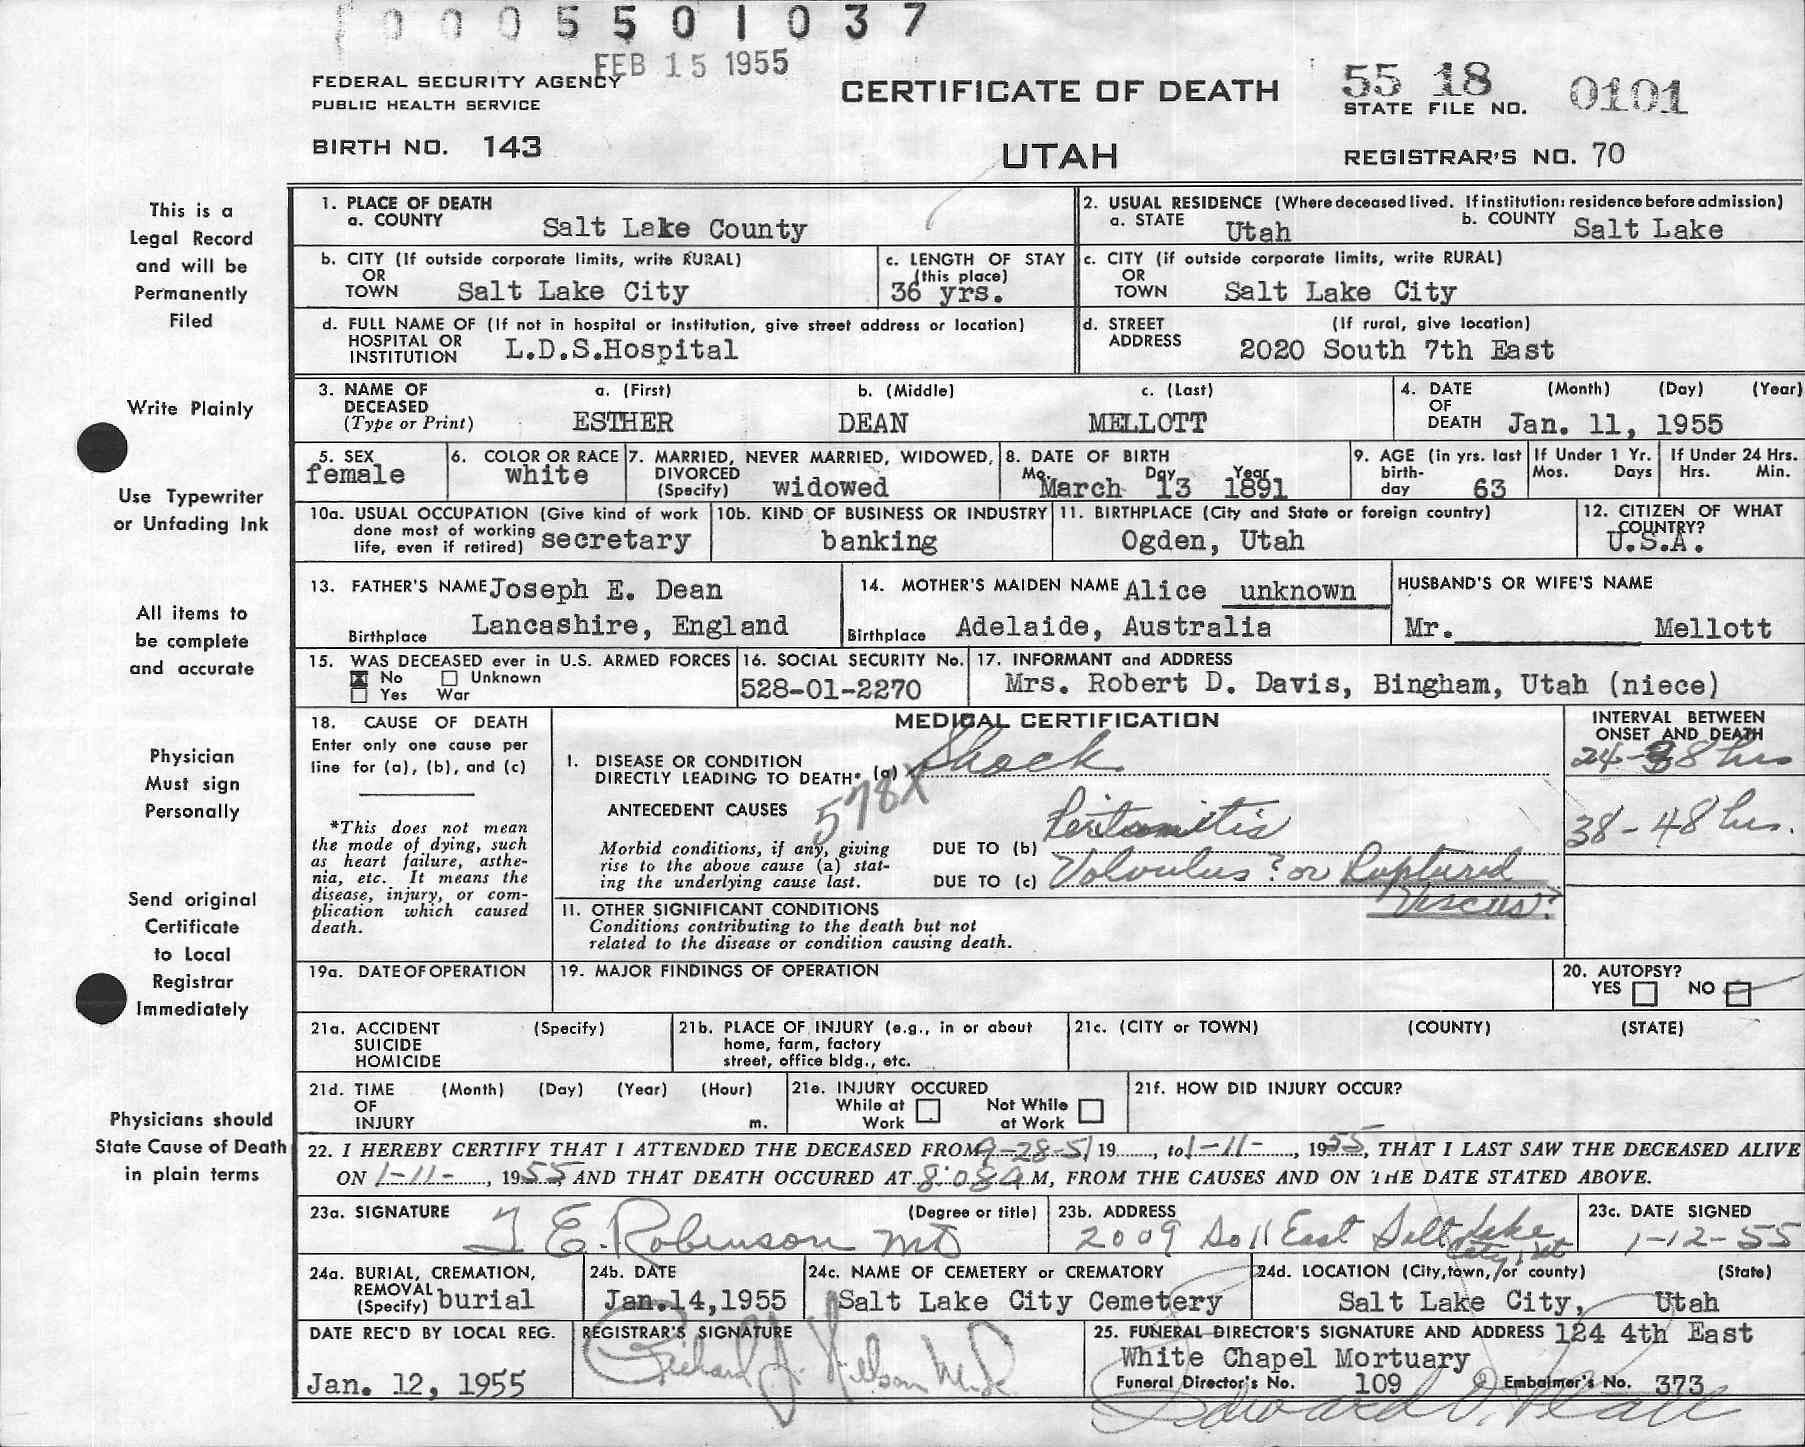 0005501037
FEB 15 1955
FEDERAL SECURITY AGENCY
PUBLIC HEALTH SERVICE
CERTIFICATE OF DEATH
55 18 0101
STATE FILE NO.
BIRTH NO. 143
UTAH
REGISTRAR'S NO. 70
This is a
Legal Record
and will be
Permanently
Filed
Write Plainly
Use Typewriter
or Unfading Ink
All items to
be complete
and accurate
Physician
Must sign
Personally
Send original
Certificate
to Local
Registrar
Immediately
Physicians should
State Cause of Death
in plain terms
1. PLACE OF DEATH
a. COUNTY Salt Lake County
2. USUAL RESIDENCE (Where deceased lived. If institution: residence before admission)
a. STATE Utah b. COUNTY Salt Lake
b. CITY (If outside corporate limits, write RURAL)
OR
TOWN Salt Lake City
c. LENGTH OF STAY
(this place)
36 yrs.
c. CITY (if outside corporate limits, write RURAL)
OR
TOWN Salt Lake City
d. FULL NAME OF (If not in hospital or institution, give street address or location)
HOSPITAL OR
INSTITUTION L.D.S.Hospital
d. STREET (If rural, give location)
ADDRESS 2020 South 7th East
3. NAME OF a. (First) b. (Middle) c. (Last)
DECEASED
(Type or Print) ESTHER DEAN MELLOTT
4. DATE (Month) (Day) (Year)
OF
DEATH Jan. 11, 1955
5. SEX
female
6. COLOR OR RACE
white
7. MARRIED, NEVER MARRIED, WIDOWED,
DIVORCED
(Specify) widowed
8. DATE OF BIRTH
Mo. Day Year
March 13 1891
9. AGE (in yrs. last
birth-
day 63
If Under 1 Yr.
Mos. Days
If Under 24 Hrs.
Hrs. Min.
10a. USUAL OCCUPATION (Give kind of work
done most of working
life, even if retired) secretary
10b. KIND OF BUSINESS OR INDUSTRY
banking
11. BIRTHPLACE (City and State or foreign country)
Ogden, Utah
12. CITIZEN OF WHAT
COUNTRY?
U.S.A.
13. FATHER'S NAME Joseph E. Dean
Birthplace Lancashire, England
14. MOTHER'S MAIDEN NAME Alice unknown
Birthplace Adelaide, Australia
HUSBAND'S OR WIFE'S NAME
Mr. Mellott
15. WAS DECEASED ever in U.S. ARMED FORCES
No Unknown
Yes War
16. SOCIAL SECURITY No.
528-01-2270
17. INFORMANT and ADDRESS
Mrs. Robert D. Davis, Bingham, Utah (niece)
18. CAUSE OF DEATH
Enter only one cause per
line for (a), (b), and (c)
*This does not mean
the mode of dying, such
as heart failure, asthe-
nia, etc. It means the
disease, injury, or com-
plication which caused
death.
MEDICAL CERTIFICATION
I. DISEASE OR CONDITION
DIRECTLY LEADING TO DEATH* (a) Shock
578X
ANTECEDENT CAUSES
Morbid conditions, if any, giving
rise to the above cause (a) stat-
ing the underlying cause last.
DUE TO (b) Peritonitis
DUE TO (c) Volvulus? or Ruptured
Viscus?
II. OTHER SIGNIFICANT CONDITIONS
Conditions contributing to the death but not
related to the disease or condition causing death.
INTERVAL BETWEEN
ONSET AND DEATH
24-38 hrs
38-48 hrs.
19a. DATE OF OPERATION
19. MAJOR FINDINGS OF OPERATION
20. AUTOPSY?
YES NO
21a. ACCIDENT (Specify)
SUICIDE
HOMICIDE
21b. PLACE OF INJURY (e.g., in or about
home, farm, factory
street, office bldg., etc.
21c. (CITY or TOWN) (COUNTY) (STATE)
21d. TIME (Month) (Day) (Year) (Hour)
OF
INJURY m.
21e. INJURY OCCURED
While at Not While
Work at Work
21f. HOW DID INJURY OCCUR?
22. I HEREBY CERTIFY THAT I ATTENDED THE DECEASED FROM 9-28-51 19......, to 1-11-, 1955, THAT I LAST SAW THE DECEASED ALIVE
ON 1-11-, 1955, AND THAT DEATH OCCURED AT 8:08A M, FROM THE CAUSES AND ON THE DATE STATED ABOVE.
23a. SIGNATURE (Degree or title)
T E. Robinson MD
23b. ADDRESS
2009 So 11 East Salt Lake
City, Ut
23c. DATE SIGNED
1-12-55
24a. BURIAL, CREMATION,
REMOVAL
(Specify) burial
24b. DATE
Jan.14,1955
24c. NAME OF CEMETERY or CREMATORY
Salt Lake City Cemetery
24d. LOCATION (City, town, or county) (State)
Salt Lake City, Utah
DATE REC'D BY LOCAL REG.
Jan. 12, 1955
REGISTRAR'S SIGNATURE
Richard J. Nelson M.D.
25. FUNERAL DIRECTOR'S SIGNATURE AND ADDRESS 124 4th East
White Chapel Mortuary
Funeral Director's No. 109 Embalmer's No. 373